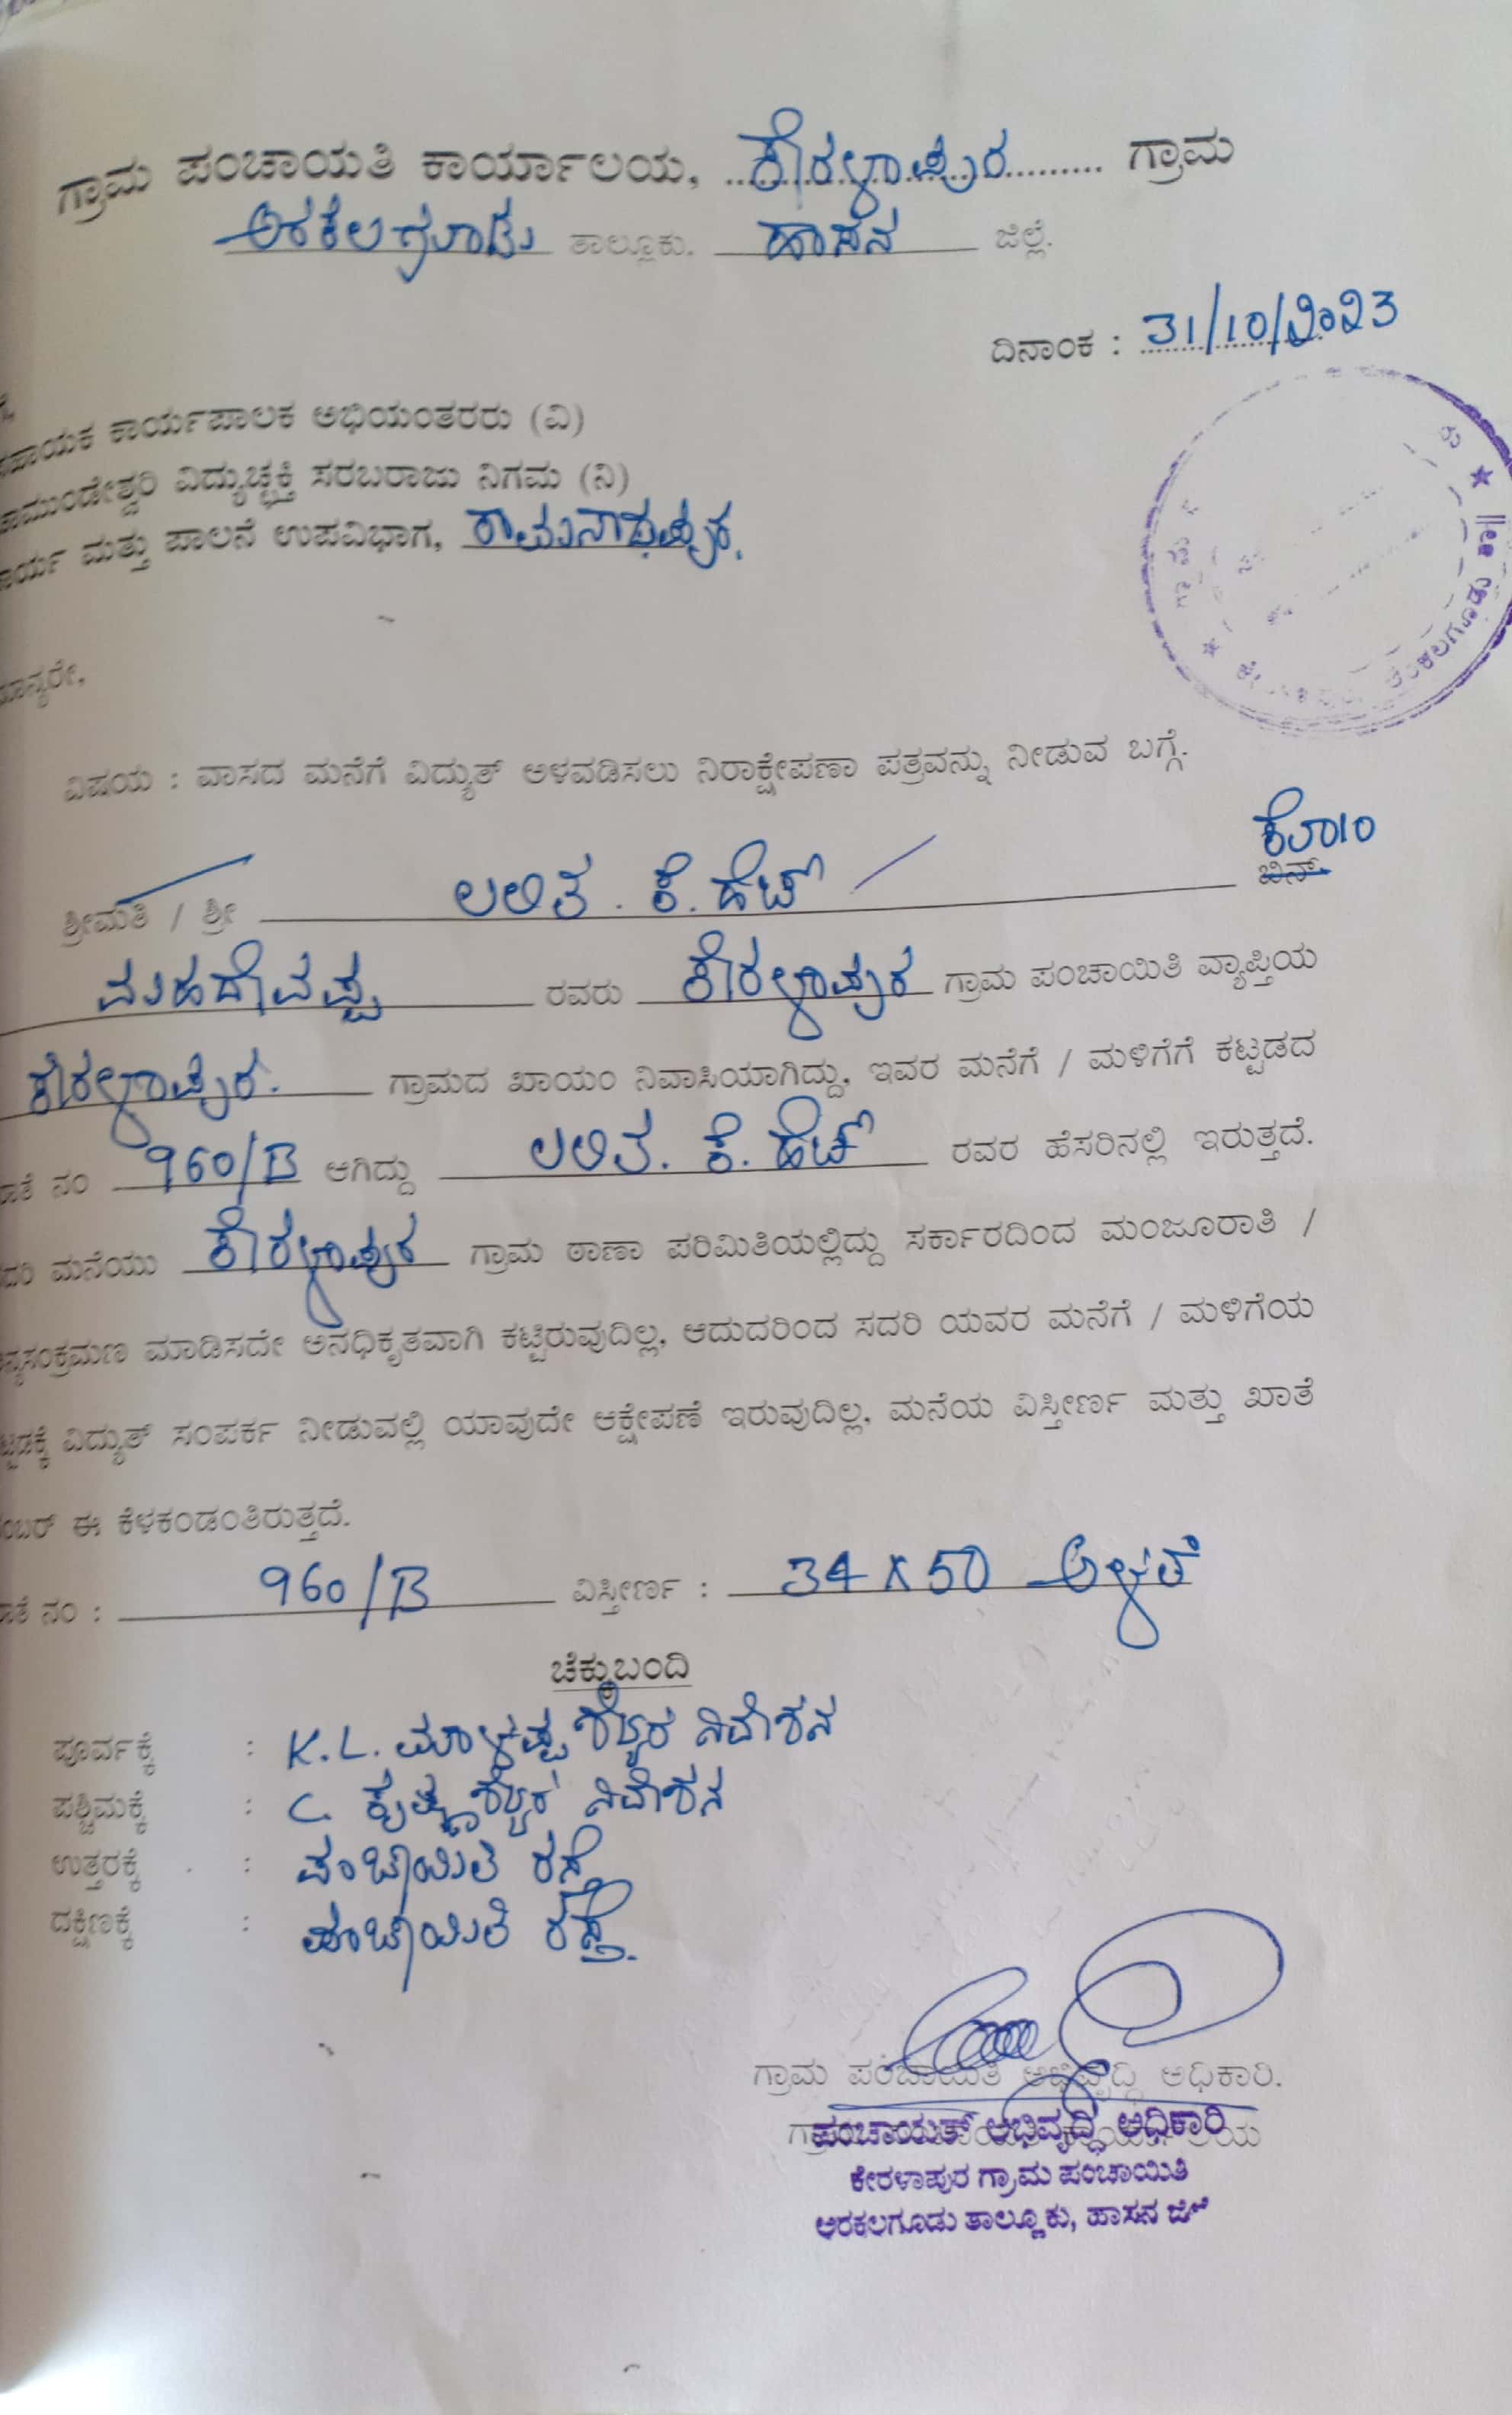 ಗ್ರಾಮ ಪಂಚಾಯತಿ ಕಾರ್ಯಾಲಯ, ಕೇರಳಾಪುರ ಗ್ರಾಮ
ಅರಕಲಗೂಡು ತಾಲ್ಲೂಕು. ಹಾಸನ ಜಿಲ್ಲೆ.
ದಿನಾಂಕ : 31/10/2023
ಸಹಾಯಕ ಕಾರ್ಯಪಾಲಕ ಅಭಿಯಂತರರು (ವಿ)
ಚಾಮುಂಡೇಶ್ವರಿ ವಿದ್ಯುಚ್ಛಕ್ತಿ ಸರಬರಾಜು ನಿಗಮ (ನಿ)
ಕಾರ್ಯ ಮತ್ತು ಪಾಲನೆ ಉಪವಿಭಾಗ, ರಾಮನಾಥಪುರ.
ಮಾನ್ಯರೇ,
ವಿಷಯ : ವಾಸದ ಮನೆಗೆ ವಿದ್ಯುತ್ ಅಳವಡಿಸಲು ನಿರಾಕ್ಷೇಪಣಾ ಪತ್ರವನ್ನು ನೀಡುವ ಬಗ್ಗೆ.
ಶ್ರೀಮತಿ / ಶ್ರೀ ಲಲಿತ . ಕೆ. ಹೆಚ್ ಬಿನ್. ಕೋಂ
ಮಹದೇವಪ್ಪ ರವರು ಕೇರಳಾಪುರ ಗ್ರಾಮ ಪಂಚಾಯಿತಿ ವ್ಯಾಪ್ತಿಯ
ಕೇರಳಾಪುರ. ಗ್ರಾಮದ ಖಾಯಂ ನಿವಾಸಿಯಾಗಿದ್ದು, ಇವರ ಮನೆಗೆ / ಮಳಿಗೆಗೆ ಕಟ್ಟಡದ
ಖಾತೆ ನಂ 960/B ಆಗಿದ್ದು ಲಲಿತ. ಕೆ. ಹೆಚ್ ರವರ ಹೆಸರಿನಲ್ಲಿ ಇರುತ್ತದೆ.
ಸದರಿ ಮನೆಯು ಕೇರಳಾಪುರ ಗ್ರಾಮ ಠಾಣಾ ಪರಿಮಿತಿಯಲ್ಲಿದ್ದು ಸರ್ಕಾರದಿಂದ ಮಂಜೂರಾತಿ /
ಅನ್ಯಸಂಕ್ರಮಣ ಮಾಡಿಸದೇ ಅನಧಿಕೃತವಾಗಿ ಕಟ್ಟಿರುವುದಿಲ್ಲ, ಆದುದರಿಂದ ಸದರಿ ಯವರ ಮನೆಗೆ / ಮಳಿಗೆಯ
ಕಟ್ಟಡಕ್ಕೆ ವಿದ್ಯುತ್ ಸಂಪರ್ಕ ನೀಡುವಲ್ಲಿ ಯಾವುದೇ ಆಕ್ಷೇಪಣೆ ಇರುವುದಿಲ್ಲ, ಮನೆಯ ವಿಸ್ತೀರ್ಣ ಮತ್ತು ಖಾತೆ
ನಂಬರ್ ಈ ಕೆಳಕಂಡಂತಿರುತ್ತದೆ.
ಖಾತೆ ನಂ : 960/B ವಿಸ್ತೀರ್ಣ : 34 x 50 ಅಳತೆ
ಚೆಕ್ಕುಬಂದಿ
ಪೂರ್ವಕ್ಕೆ : K.L. ಮಾಳಪ್ಪ ಶೆಟ್ಟರ ನಿವೇಶನ
ಪಶ್ಚಿಮಕ್ಕೆ : C. ಕೃಷ್ಣಶೆಟ್ಟರ ನಿವೇಶನ
ಉತ್ತರಕ್ಕೆ : ಪಂಚಾಯಿತಿ ರಸ್ತೆ
ದಕ್ಷಿಣಕ್ಕೆ : ಪಂಚಾಯಿತಿ ರಸ್ತೆ.
ಗ್ರಾಮ ಪಂಚಾಯತಿ ಅಭಿವೃದ್ಧಿ ಅಧಿಕಾರಿ.
ಪಂಚಾಯತ್ ಅಭಿವೃದ್ಧಿ ಅಧಿಕಾರಿ
ಕೇರಳಾಪುರ ಗ್ರಾಮ ಪಂಚಾಯಿತಿ
ಅರಕಲಗೂಡು ತಾಲ್ಲೂಕು, ಹಾಸನ ಜಿಲ್ಲೆ